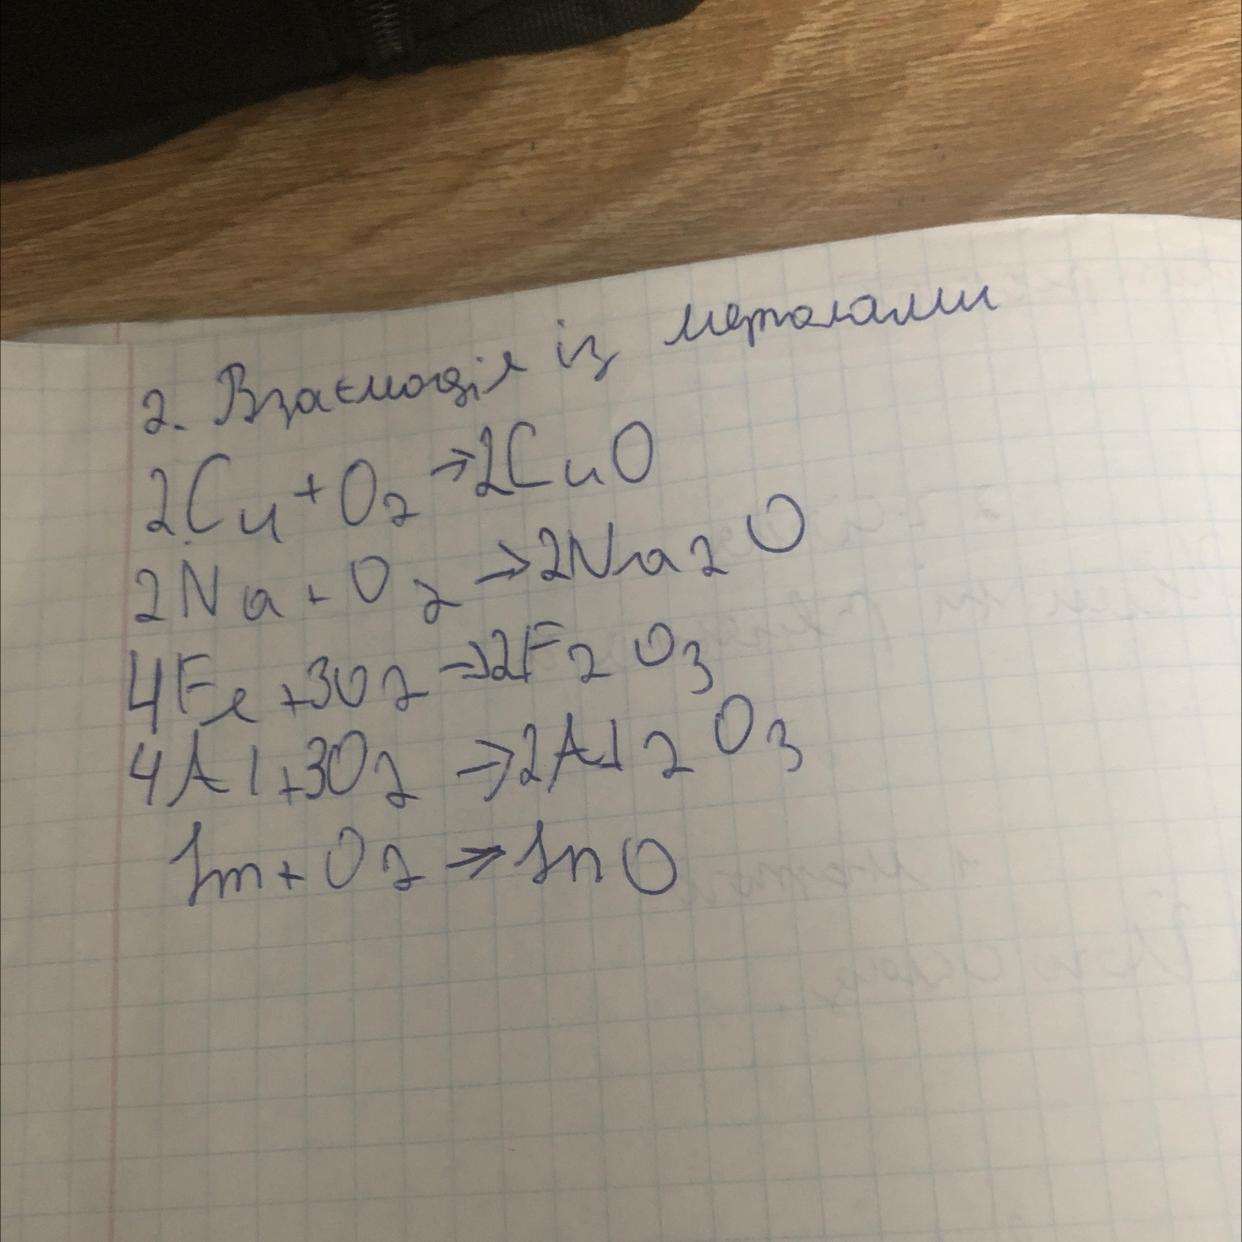 2. Взаємодія із металами
2Cu + O2 → 2CuO
2Na + O2 → 2Na2O
4Fe + 3O2 → 2F2O3
4Al + 3O2 → 2Al2O3
Zm + O2 → ZnO